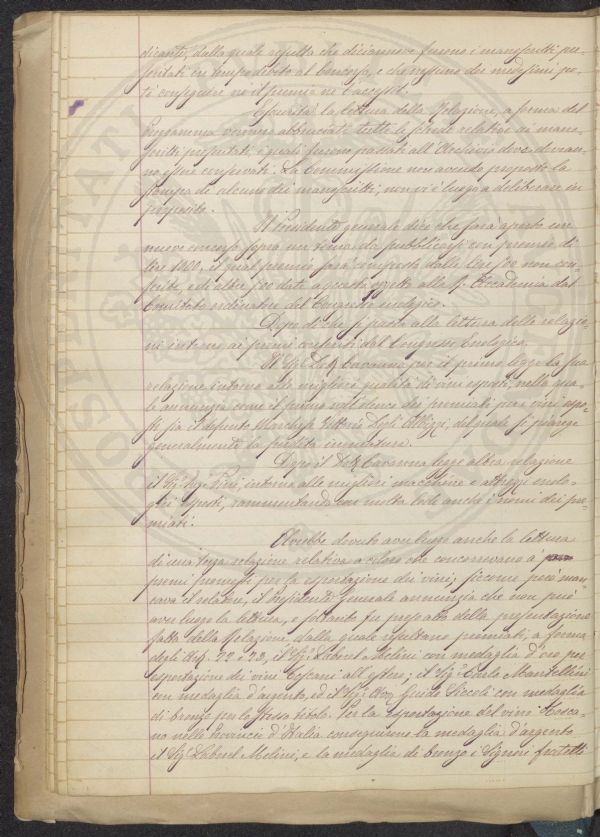 dicante, dalla quale risulta che diciannove furono i manoscritti pre-
sentati in tempo debito al Concorso, e che nessuno dei medesimi po-
tè conseguire nè il premio nè l'accessit.
Esaurita la lettura della Relazione, a forma del
Programma vennero abbruciate tutte le schede relative ai mano-
scritti presentati, i quali furono passati all'Archivio dove dovran-
no essere conservati. La Commissione non avendo proposto la
stampa di alcuno dei manoscritti, non vi è luogo a deliberare in
proposito.
Il Presidente generale dice che sarà aperto un
nuovo concorso sopra un tema da pubblicarsi con premio di
lire 1000, il qual premio sarà composto dalle lire 500 non con-
ferite, e di altre 500 date a questo oggetto alla R. Accademia dal
Comitato ordinatore del Congresso enologico.
Dopo di che si passa alla lettura delle relazio-
ni intorno ai premi conferiti dal Congresso Enologico.
Il Sig. Cavanna per il primo legge la sua
relazione intorno alle migliori qualità di vini esposti, nella qua-
le annunzia come il primo nell'elenco dei premiati per i vini espo-
sti sia il defunto Marchese Vittorio degli Albizzi, del quale si piange
generalmente la perdita immatura.
Dopo il Cavanna legge altra relazione
il Sig. Ing. Pini intorno alle migliori macchine e attrezzi enolo-
gici esposti, rammentando con molta lode anche i nomi dei pre-
miati.
Avrebbe dovuto aver luogo anche la lettura
di una terza relazione relativa a coloro che concorrevano a'
premi promessi per la esportazione dei vini; siccome però man-
cava il relatore, il Presidente Generale annunzia che non può
aver luogo la lettura, e soltanto fu preparata della presentazione
fatta della Relazione, dalla quale risultano premiati, a forma
degli Art. 22 e 23, il Sig. Laborel Melini con medaglia d'oro per
esportazione dei vini Toscani all'estero; il Sig. Carlo Mantellini
con medaglia d'argento, ed il Sig. Guido Piccoli con medaglia
di bronzo per lo stesso titolo. Per la esportazione del vino Tosca-
no nelle Provincie d'Italia conseguirono la medaglia d'argento
il Sig. Laborel Melini, e la medaglia di bronzo i Signori fratelli